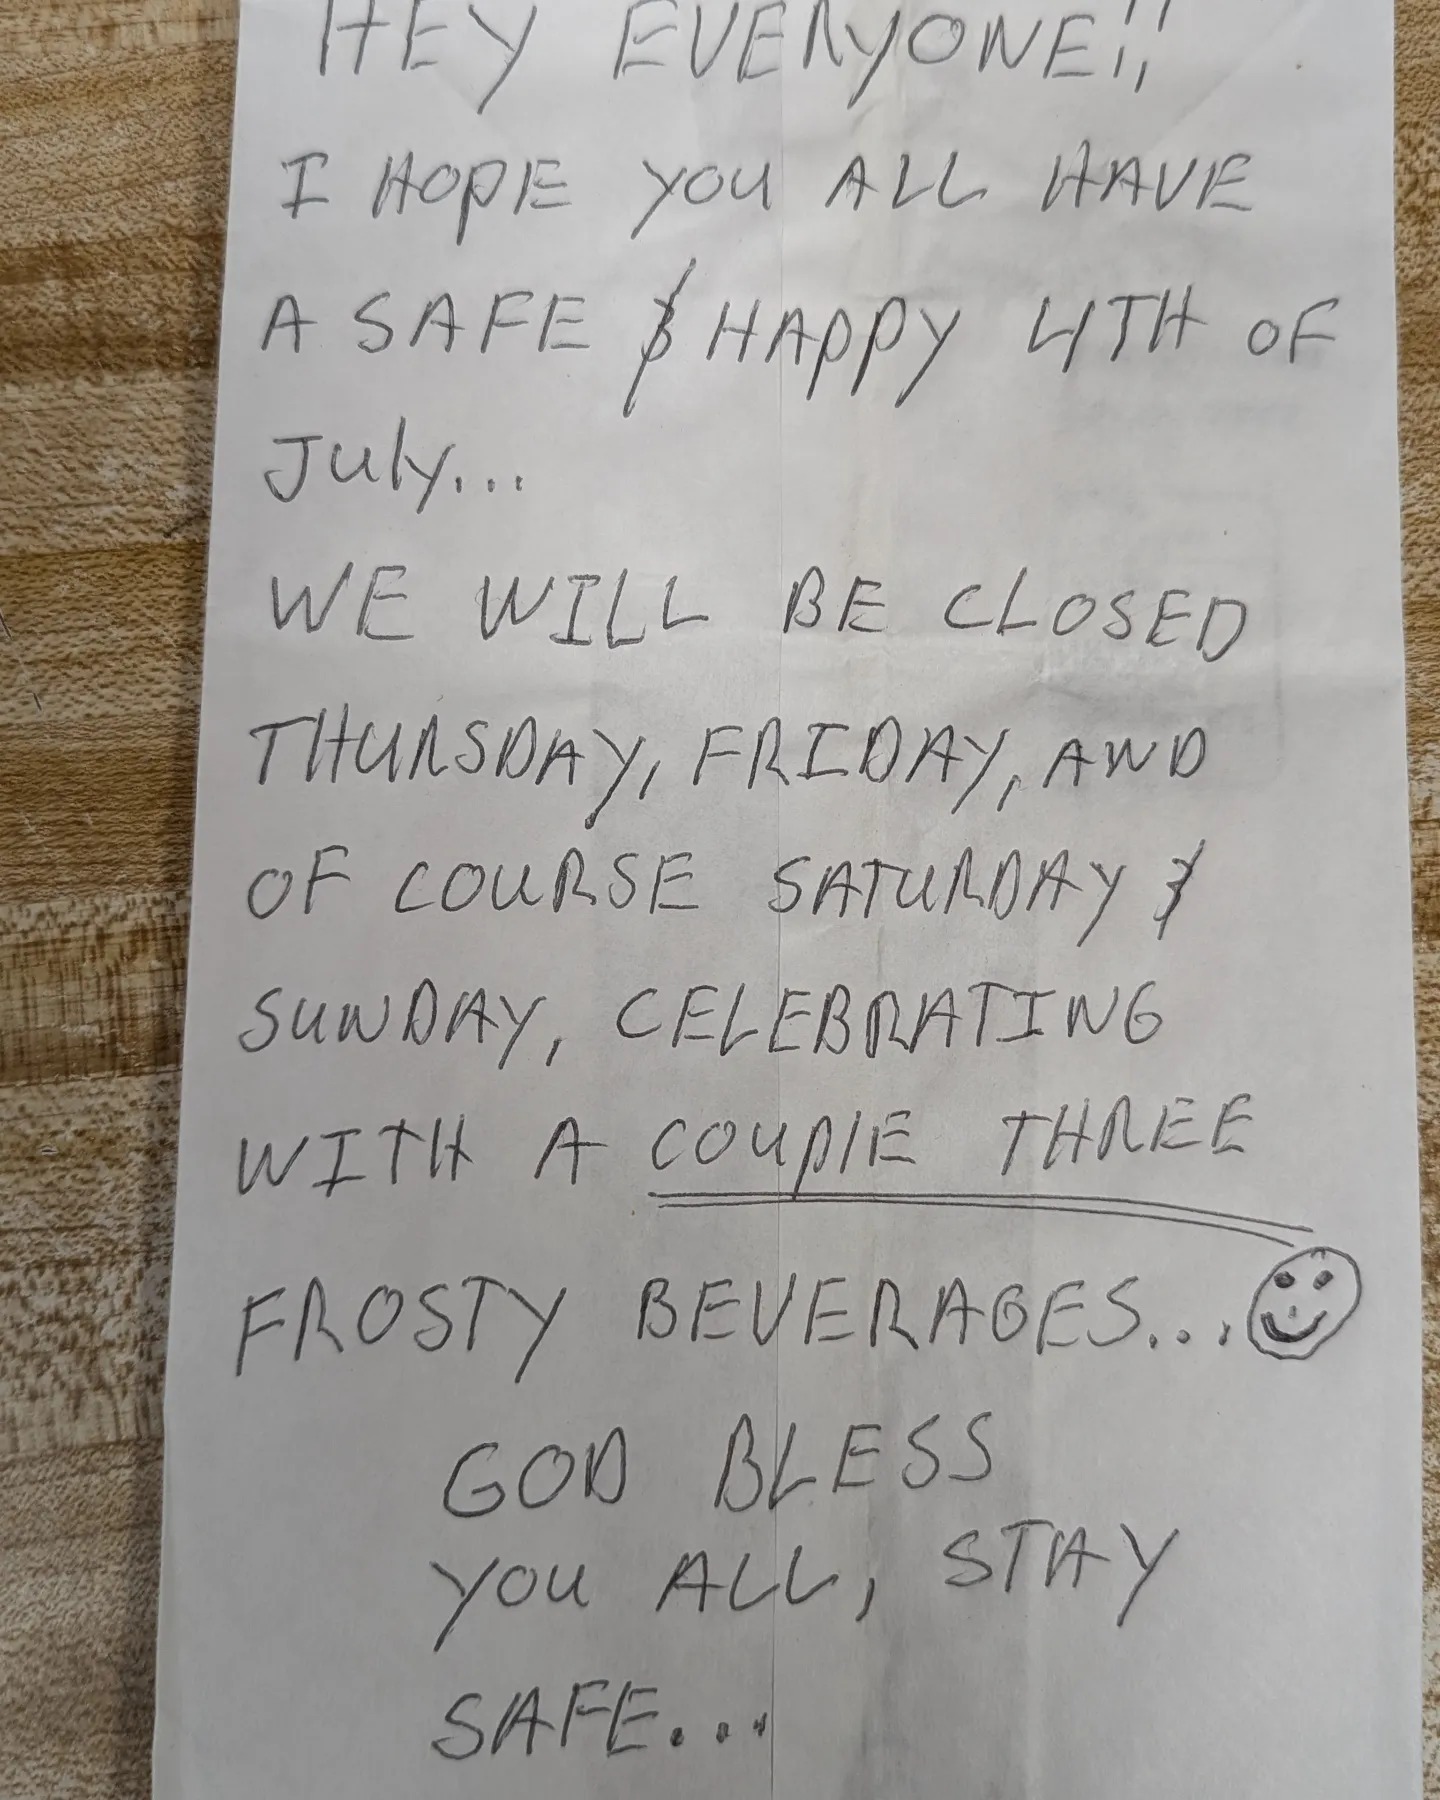 HEY EVERYONE!!
I HOPE YOU ALL HAVE
A SAFE & HAPPY 4TH OF
July...
WE WILL BE CLOSED
THURSDAY, FRIDAY, AND
OF COURSE SATURDAY &
SUNDAY, CELEBRATING
WITH A COUPLE THREE
FROSTY BEVERAGES...
GOD BLESS
YOU ALL, STAY
SAFE...